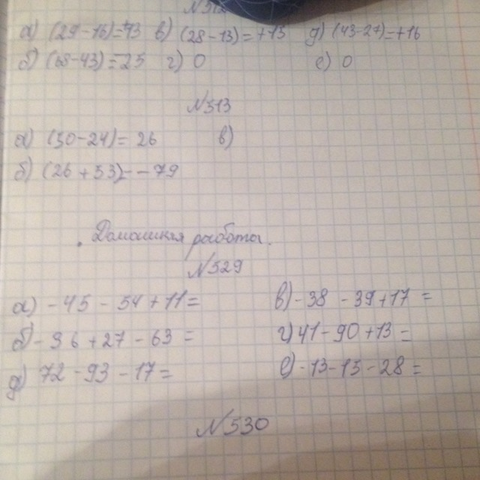 а) (29-16)=+13 в) (28-13)=+15 д) (43-27)=+16
б) (68-43)=25 г) 0 е) 0
№513
а) (50-24)= 26 в)
б) (26+53)=-79
Домашняя работы.
№529
а) -45-54+11= в) -38-39+17=
б) -96+27-63= г) 41-90+13=
д) 72-93-17= е) -13-15-28=
№530